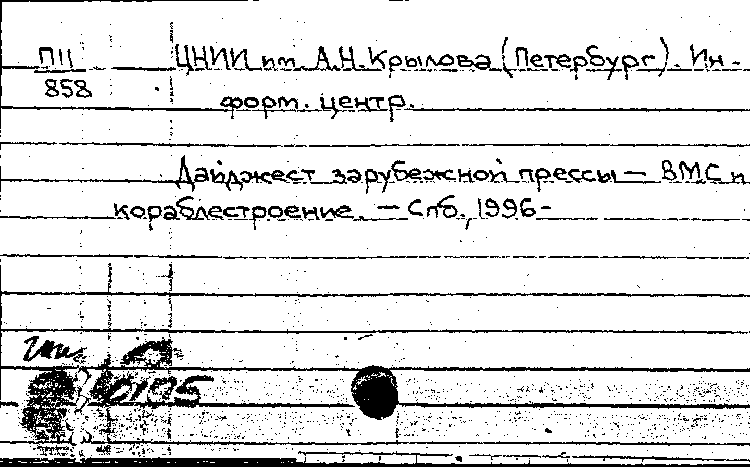 П11 ЦНИИ им. А.Н.Крылова (Петербург). Ин-
858 форм. центр.
Дайджест зарубежной прессы — ВМС и
кораблестроение. — Спб., 1996-